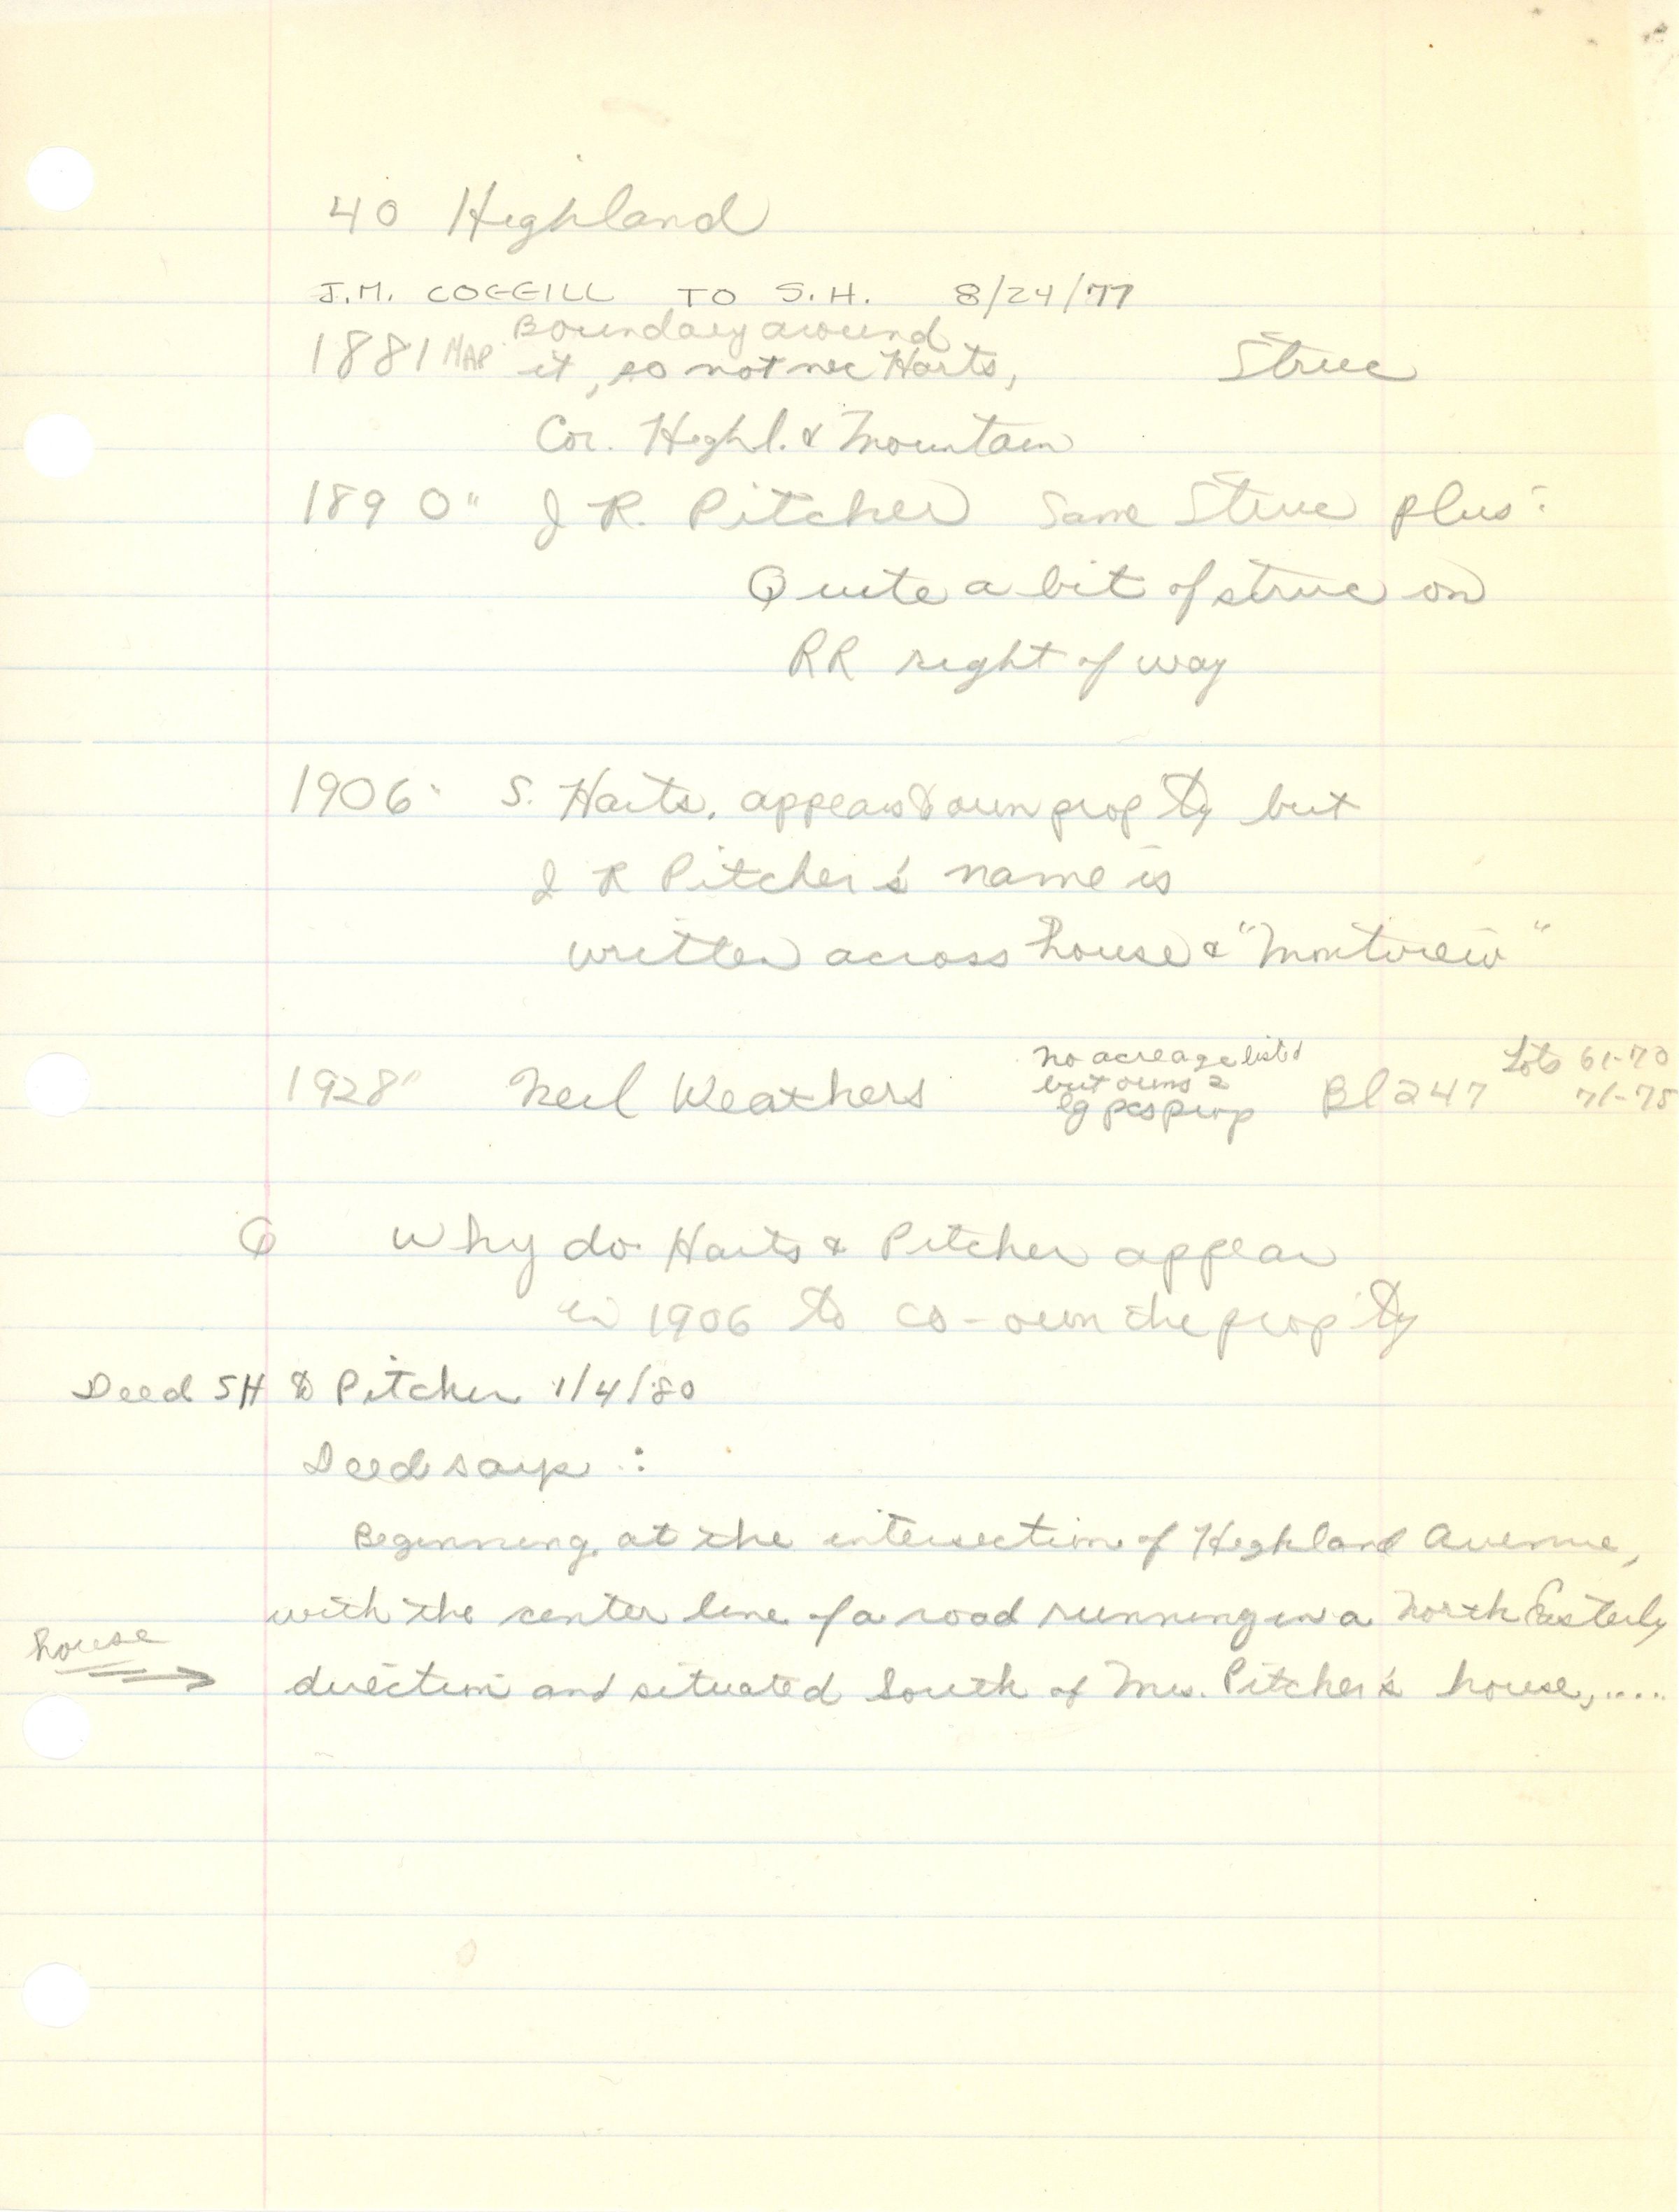 40 Highland
J.M. COGGILL TO S.H. 8/24/77
1881 MAP Boundary around
it, so not nec Harts, Struc
Cor. Highl. & Mountain
1890 " J R. Pitcher Same Struc plus:
Quite a bit of struc on
RR right of way
1906 " S. Harts, appears to own prop'ty but
J R Pitcher's name is
written across house & "Montview"
1928 " Neil Weathers no acreage list'd
but owns 2
lg pcs prop Bl 247 Lots 61-70
71-75
Q Why do Harts & Pitcher appear
in 1906 to co-own the prop'ty
Deed SH to Pitcher 1/4/80
Deed says :
Beginning at the intersection of Highland Avenue,
with the center line of a road running in a North Easterly
house
direction and situated South of Mrs. Pitcher's house,....